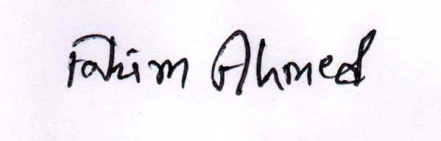 Fahim Ahmed